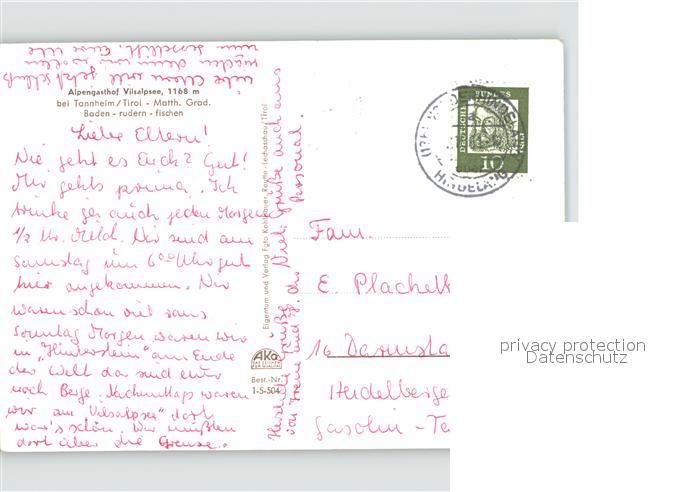 Alpengasthof Vilsalpsee, 1168 m
bei Tannheim/Tirol - Matth. Grad.
Baden - rudern - fischen
Liebe Eltern!
Wie geht es Euch? Gut!
Mir gehts prima. Ich
trinke ja auch jeden Morgen
1/2 ltr. Milch. Wir sind am
Samstag um 6 00 Uhr gut
hier angekommen. Wir
waren schon viel raus
Sonntag Morgen waren wir
in "Hinterstein" am Ende
der Welt da sind nur
noch Berge. Nachmittags waren
wir am "Vilsalpsee" dort
war's schön. Wir mußten
dort über die Grenze.
Liebe Eltern will jetzt schluß
machen denn wir wollen
Eure Ute
Herzliche Grüße
von Irene und
Viele Grüße auch ans
Personal.
Eigentum und Verlag Foto Reutte, Lechaschau/Tirol
AKA
DAS ZEICHEN
FÜR QUALITÄT
Best.-Nr.
1-5-504
DEUTSCHE BUNDESPOST
10
HINDELANG
Fam.
E. Plachetk
16 Darmsta
Heidelberge
Gasolin - Te
privacy protection
Datenschutz